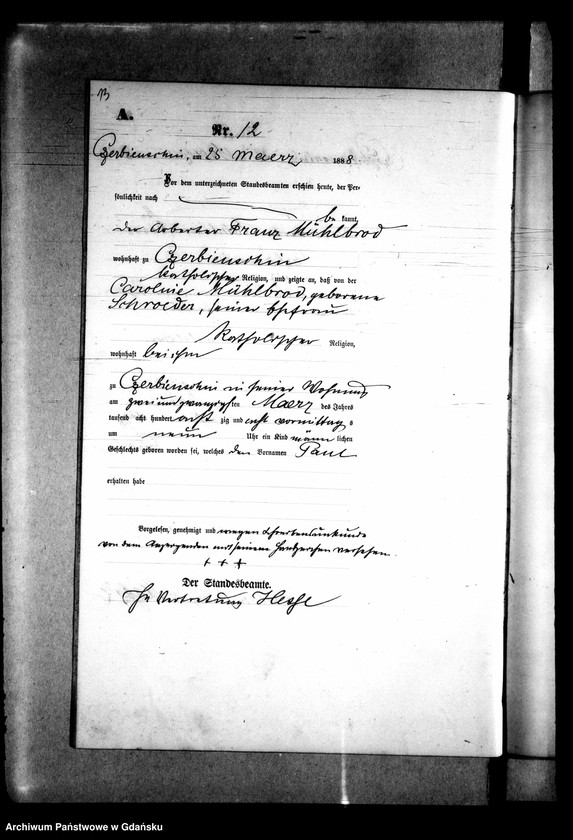 13
A.
Nr. 12
Czerbienschin, am 25 Maerz 1888.
Vor dem unterzeichneten Standesbeamten erschien heute, der Per-
sönlichkeit nach
be kannt,
der Arbeiter Franz Mühlbrod
wohnhaft zu Czerbienschin
katholischer Religion, und zeigte an, daß von der
Caroline Mühlbrod, geborene
Schroeder, seiner Ehefrau
katholischer Religion,
wohnhaft bei ihm
zu Czerbienschin in seiner Wohnung
am zwei und zwanzigsten Maerz des Jahres
tausend acht hundert acht zig und acht vormittag s
um neun Uhr ein Kind männ lichen
Geschlechts geboren worden sei, welches den Vornamen Paul
erhalten habe
Vorgelesen, genehmigt und wegen Schreibensunkunde
von dem Anzeigenden mit seinem Handzeichen versehen.
+ + +
Der Standesbeamte.
In Vertretung Hesse
Archiwum Państwowe w Gdańsku